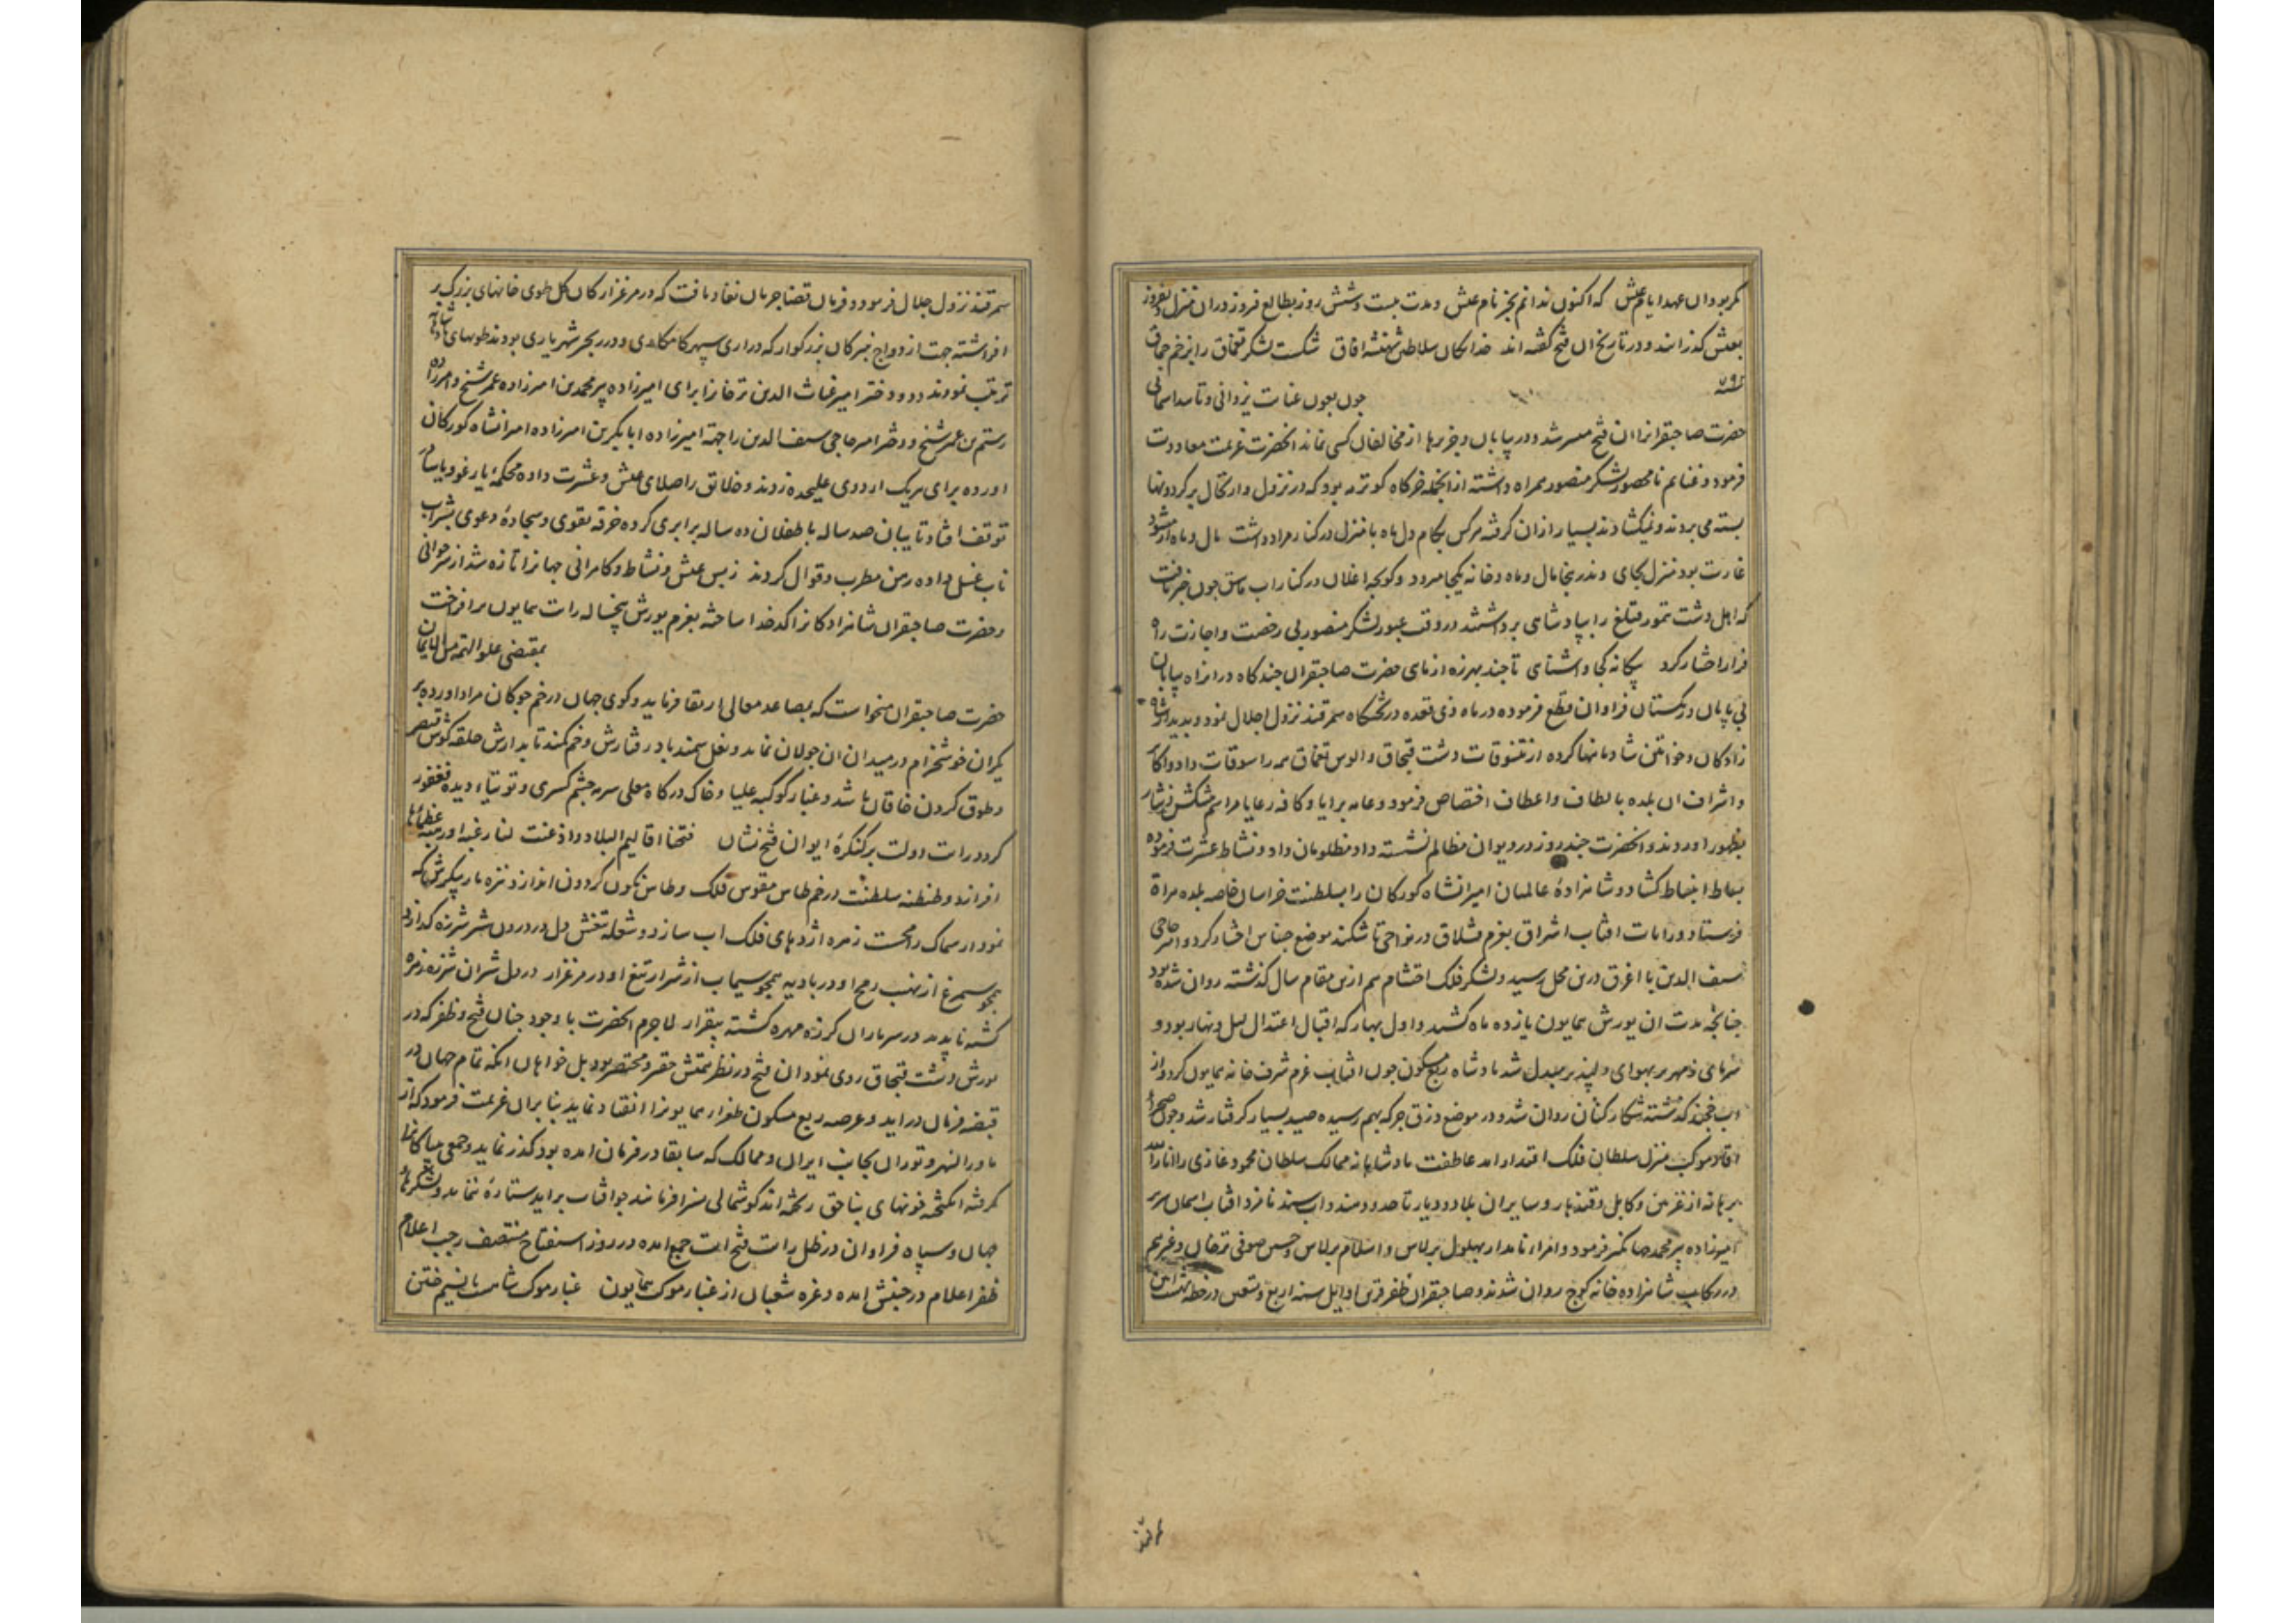 مکر بود ان عهد ایام عیش که اکنون ندانم بجز نام عیش و مدت بیست و شش روز بطالع فروز دران منزل
بعیش کذرانند و در تاریخ ان فتح کفته اند خدایکان سلاطین شهنشه افاق شکست لشکر تقماق را بزخم چماق
سنه ۷۹۳ چون بعون عنایت یزدانی و تایید اسمانی
حضرت صاحبقرانرا ان فتح میسر شد و در بیابان و جزیرها از مخالفان کسی نماند انحضرت عزیمت معاودت
فرمود و غنایم نامحصور لشکر منصور همراه داشته ازانجمله خرکاه کوترمه بود که در نزول و ارتحال بر کردونها
بسته می بردند و نمیکشادند بسیار ازان کرفته هرکس بکام دل ماه با منزل در کنار مراد داشت مال و ماه
غارت بود منزل بجای وندر ینجا مال و ماه و خانه یکجا میرود و کونجه اغلان در کنار اب چون خبر یافت
که اهل دشت تمور قتلغ را بپادشاهی برداشتند در وقت عبور لشکر منصور بی رخصت و اجازت راه
فرار اختیار کرد بیکانه کجا و اشنای تا چند بهرزه ازمای حضرت صاحبقران چند کاه در انراه بیابان
بی پایان و ریکستان فراوان قطع فرموده در ماه ذی قعده در تختکاه سمرقند نزول اجلال نمود و بدیدار
زادکان و خواتین شادمانیها کرده از تنسوقات دشت قبچاق و الوس تقماق همه را سوقات داد و اکابر
و اشراف ان بلده بالطاف و اعطاف اختصاص فرمود و عامه برایا و کافه رعایا مراسم پیشکش و نثار
بظهور اوردند و انحضرت چند روز در دیوان مظالم نشسته داد مظلومان داد و نشاط عشرت فرموده
بساط انبساط کشاد و شاهزاده عالمیان امیرانشاه کورکان را بسلطنت خراسان خاصه بلده هراة
فرستاد و رایات افتاب اشراق بعزم قشلاق در نواحی تاشکند موضع چناس اختیار کرد و امیر حاجی
سیف الدین با اغرق درین محل رسید و لشکر فلک احتشام هم ازین مقام سال کذشته روان شده بود
چنانچه مدت ان یورش همایون یازده ماه کشید و اول بهار که اقبال اعتدال لیل و نهار بود و
سرمای زمهریر بهوای دلپذیر مبدل شد پادشاه ربع مسکون چون افتاب عزم شرف خانه همایون کرد و از
اب خجند کذشته شکار کنان روان شد و در موضع جرکه بهم رسیده صید بسیار کرفتار شد و چون صحراء
منزل سلطان فلک اقتدار امد عاطفت پادشاهانه ممالک سلطان محمود غازی را انار الله
برهانه از غزنین و کابل و قندهار و سایر ان بلاد و دیار تا حدود هند و اب سند نامزد افتاب اسمان سریر
امیرزاده پیرمحمد جهانکیر فرمود و امراء نامدار بهلول برلاس و اسلام برلاس و حسن صوفی ترخان و غیرهم
در رکاب شاهزاده خانه کوچ روان شدند و صاحبقران ظفر قرین اوایل سنه اربع و تسعین در خطه
سمرقند نزول جلال فرمود و فرمان قضا جریان نفاذ یافت که در مرغزار کان کل طوی خانهای بزرک بر
افراشته جهت ازدواج نبیرکان بزرکوار که دراری سپهر کامکاری و درر بحر شهریاری بودند طویهای
ترتیب نمودند و دو دختر امیر غیاث الدین ترخانرا برای امیرزاده پیرمحمد بن امیرزاده عمرشیخ و امیرزاده
رستم بن عمرشیخ و دختر امیر حاجی سیف الدین را جهة امیرزاده ابابکر بن امیرزاده امیرانشاه کورکان
اورده برای هریک اردوی علیحده زدند و خلایق را صلای عیش و عشرت داده محکمهٔ یارغو و یاسا
توقف افتاد تایبان صد ساله با طفلان ده ساله برابری کرده خرقه تقوی و سجادهٔ دعوی بشراب
ناب غسل داده رهن مطرب و قوال کردند ز بس عیش و نشاط و کامرانی جهانرا تازه شد از سر جوانی
و حضرت صاحبقران شاهزادکانرا کدخدا ساخته بعزم یورش پنجساله رایت همایون برافراخت
بمقتضی علو الهمه من الایمان
حضرت صاحبقران میخواست که بمصاعد معالی ارتقا فرماید و کوی جهان در خم چوکان مراد اورده بر
یکران خوشخرام در میدان ان جولان نماید و نعل سمند باد رفتارش و خم کمند تابدارش حلقه کوش قیصر
و طوق کردن خاقان باشد و غبار کوکبه علیا و خاک درکاه معلی سرمه چشم کسری و توتیاء دیده فغفور
کردد رایت دولت بر کنکرهٔ ایوان فتح نشان فتحنا اقالیم البلاد و اذعنت لنا رغبة او رهبة عظماؤها
افراند و طنطنه سلطنت در خم طاس مقوس فلک و طاس نکون کردون اندازد نیزه مار پیکرش که
نمودار سماک رامحست زهره اژدهای فلک اب سازد و شعله تیغش دل در درون شیر شرزه کدازد
همچو سیمرغ از نهیب رمح او در بادیه همچو سیماب از شرار تیغ او در مرغزار در دل شیران شرزه زهره
کشته ناپدید در سر ماران کرزه مهره کشته بیقرار لاجرم انحضرت با وجود چنان فتح و ظفر که در
یورش دشت قبچاق روی نمود ان فتح در نظر همتش حقیر و مختصر بود بل خواهان انکه تمام جهان در
قبضه فرمان دراید و عرصه ربع مسکون طغرای همایونرا انقیاد نماید بنابران عزیمت فرمود که از
ماورالنهر و توران بجانب ایران و ممالک که سابقا در فرمان امده بود کذر نماید و جمعی
کرفته انکیخته خونهای بناحق ریخته اند کوشمالی بسزا فرماید چو افتاب براید ستاره ننماید و لشکرهاء
جهان و سپاه فراوان در ظل رایت فتح ایت جمع امده در روز استفتاح منتصف رجب اعلام
ظفر اعلام در جنبش امده و غره شعبان از غبار موکب همایون غبار موکب شاهست یا نسیم ختن